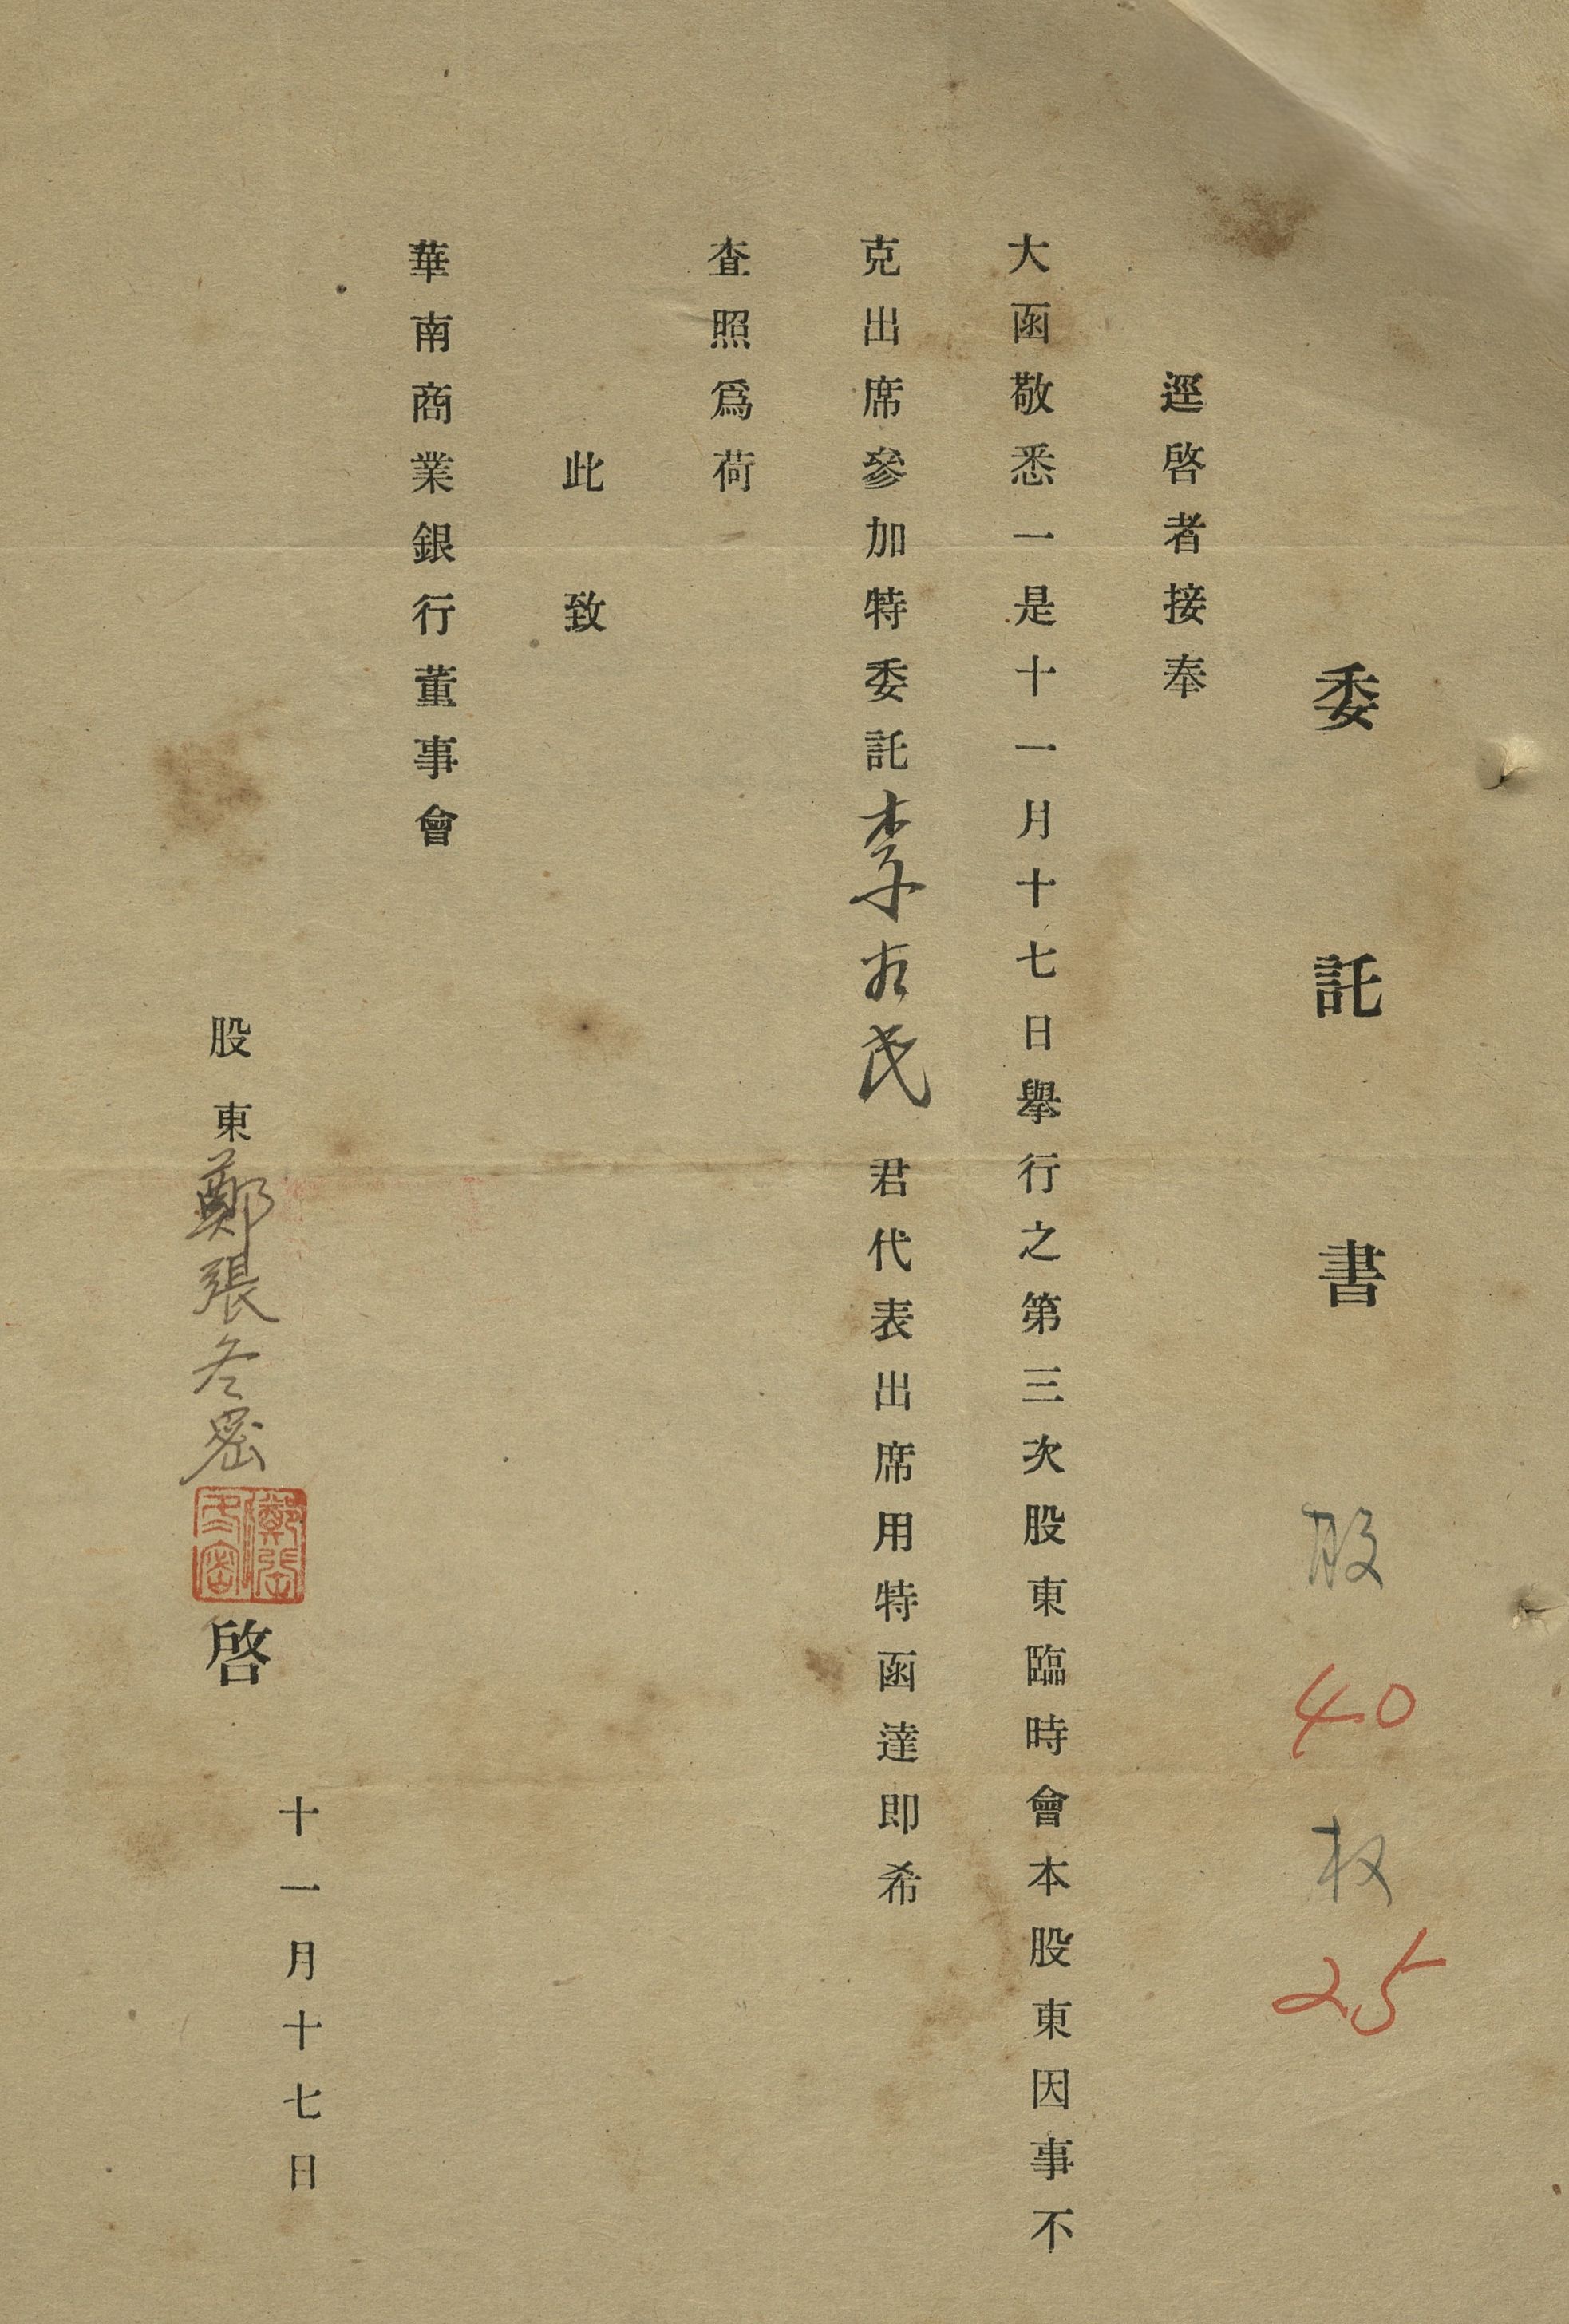 委託書 股 40 权 25
逕啓者接奉
大函敬悉一是十一月十七日舉行之第三次股東臨時會本股東因事不
克出席參加特委託李友民君代表出席用特函達即希
查照爲荷
此致
華南商業銀行董事會
股東鄭張冬密啓
鄭張冬密
十一月十七日